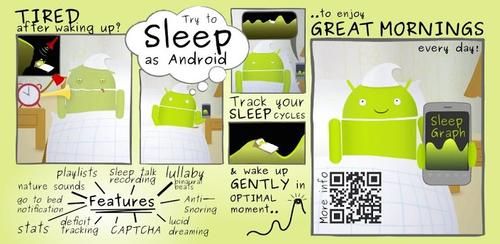 TIRED
after waking up?
Try to
Sleep
as Android
Track your
SLEEP CYCLES
& wake up
GENTLY in
OPTIMAL
moment..
..to enjoy
GREAT MORNINGS
every day!
Sleep
Graph
More info
Features
playlists
Sleep talk
recording
lullaby
binaural
beats
nature sounds
go to bed
notification
Anti-
Snoring
stats
deficit
tracking
CAPTCHA
lucid
dreaming